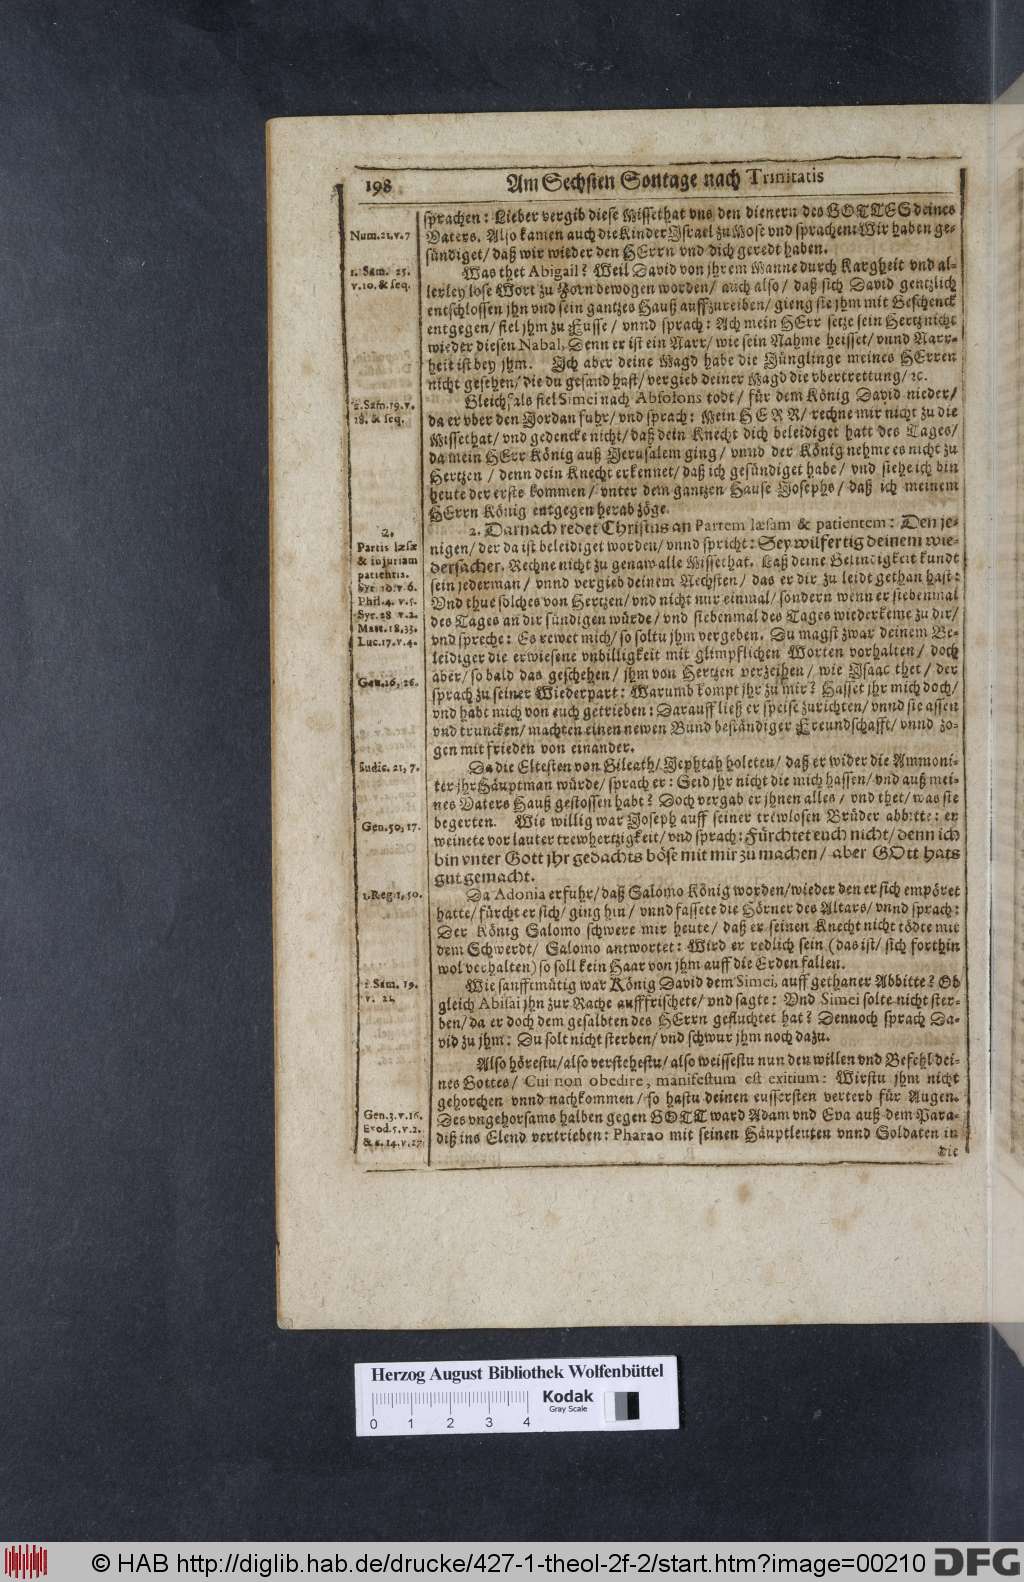 198
Am Sechsten Sontage nach Trinitatis
sprachen: Lieber vergib diese Missethat vns den dienern des GOTTES deines
Num.21.v.7
Vaters. Also kamen auch die Kinder Jsrael zu Mose vnd sprachen: Wir haben ge-
sündiget/ daß wir wieder den HErrn vnd dich geredt haben.
1. Sam. 25.
v.10. & seq.
Was thet Abigail? Weil David von jhrem Manne durch Kargheit vnd al-
lerley lose Wort zu Zorn bewogen worden/ auch also/ daß sich David gentzlich
entschlossen jhn vnd sein gantzes Hauß auffzureiben/ gieng sie jhm mit Geschenck
entgegen/ fiel jhm zu Fusse/ vnnd sprach: Ach mein HErr setze sein Hertz nicht
wieder diesen Nabal, Denn er ist ein Narr/ wie sein Nahme heisset/ vnnd Narr-
heit ist bey jhm. Jch aber deine Magd habe die Jünglinge meines HErren
nicht gesehen/ die du gesand hast/ vergieb deiner Magd die vbertrettung/ ꝛc.
2. Sam. 19. v.
18. & seq.
Gleichfals fiel Simei nach Absolons todt/ für dem König David nieder/
da er vber den Jordan fuhr/ vnd sprach: Mein HERR/ rechne mir nicht zu die
Missethat/ vnd gedencke nicht/ daß dein Knecht dich beleidiget hatt des Tages/
da mein HErr König auß Jerusalem ging/ vnnd der König nehme es nicht zu
Hertzen/ denn dein Knecht erkennet/ daß ich gesündiget habe/ vnd siehe ich bin
heute der erste kommen/ vnter dem gantzen Hause Josephs/ daß ich meinem
HErrn König entgegen herab zöge.
2.
Partis læsæ
& injuriam
patientis.
Syr. 10. v. 6.
Phil. 4. v. 5.
Syr. 28 v. 2.
Matt. 18, 35.
Luc. 17. v. 4.
2. Darnach redet Christus an Partem læsam & patientem: Den je-
nigen/ der da ist beleidiget worden/ vnnd spricht: Sey wilfertig deinem wie-
dersacher. Rechne nicht zu genaw alle Missethat. Laß deine Gelindigkeit kundt
sein jederman/ vnnd vergieb deinem Nechsten/ das er dir zu leidt gethan hast:
Vnd thue solches von Hertzen/ vnd nicht nur einmal/ sondern wenn er siebenmal
des Tages an dir sündigen würde/ vnd siebenmal des Tages wiederkeme zu dir/
vnd spreche: Es rewet mich/ so soltu jhm vergeben. Du magst zwar deinem Be-
leidiger die erwiesene vnbilligkeit mit glimpflichen Worten vorhalten/ doch
Gen. 26, 26.
aber/ so bald das geschehen/ jhm von Hertzen verzeihen/ wie Jsaac thet/ der
sprach zu seiner Wiederpart: Warumb kompt jhr zu mir? Hasset jhr mich doch/
vnd habt mich von euch getrieben: Darauff ließ er speise zurichten/ vnnd sie assen
vnd truncken/ machten einen newen Bund beständiger Freundschafft/ vnnd zo-
gen mit frieden von einander.
Judic. 21, 7.
Da die Eltesten von Gileath/ Jephtah holeten/ daß er wider die Ammoni-
ter jhr Häuptman würde/ sprach er: Seid jhr nicht die mich hassen/ vnd auß mei-
nes Vaters Hauß gestossen habt? Doch vergab er jhnen alles/ vnd thet/ was sie
Gen. 50, 17.
begerten. Wie willig war Joseph auff seiner trewlosen Brüder abbitte: er
weinete vor lauter trewhertzigkeit/ vnd sprach: Fürchtet euch nicht/ denn ich
bin vnter Gott jhr gedachts böse mit mir zu machen/ aber GOtt hats
gut gemacht.
1. Reg. 1, 50.
Da Adonia erfuhr/ daß Salomo König worden/ wieder den er sich empöret
hatte/ fürcht er sich/ ging hin/ vnnd fassete die Hörner des Altars/ vnnd sprach:
Der König Salomo schwere mir heute/ daß er seinen Knecht nicht tödte mit
dem Schwerdt/ Salomo antwortet: Wird er redlich sein (das ist/ sich forthin
wol verhalten) so soll kein Haar von jhm auff die Erden fallen.
2. Sam. 19.
v. 21.
Wie sanfftmütig war König David dem Simei, auff gethaner Abbitte? Ob
gleich Abisai jhn zur Rache auffrischete/ vnd sagte: Vnd Simei solte nicht ster-
ben/ da er doch dem gesalbten des HErrn gefluchtet hat? Dennoch sprach Da-
vid zu jhm: Du solt nicht sterben/ vnd schwur jhm noch dazu.
Also hörestu/ also verstehestu/ also weissestu nun den willen vnd Befehl dei-
nes Gottes/ Cui non obedire, manifestum est exitium: Wirstu jhm nicht
gehorchen vnnd nachkommen/ so hastu deinen eussersten verterb für Augen.
Gen. 3. v. 16.
Exod. 5. v. 2.
& c. 14. v. 27.
Des vngehorsams halben gegen GOTT ward Adam vnd Eva auß dem Para-
diß ins Elend vertrieben: Pharao mit seinen Häuptleuten vnnd Soldaten in
die
Herzog August Bibliothek Wolfenbüttel
0 1 2 3 4
Kodak
Gray Scale
© HAB http://diglib.hab.de/drucke/427-1-theol-2f-2/start.htm?image=00210
DFG